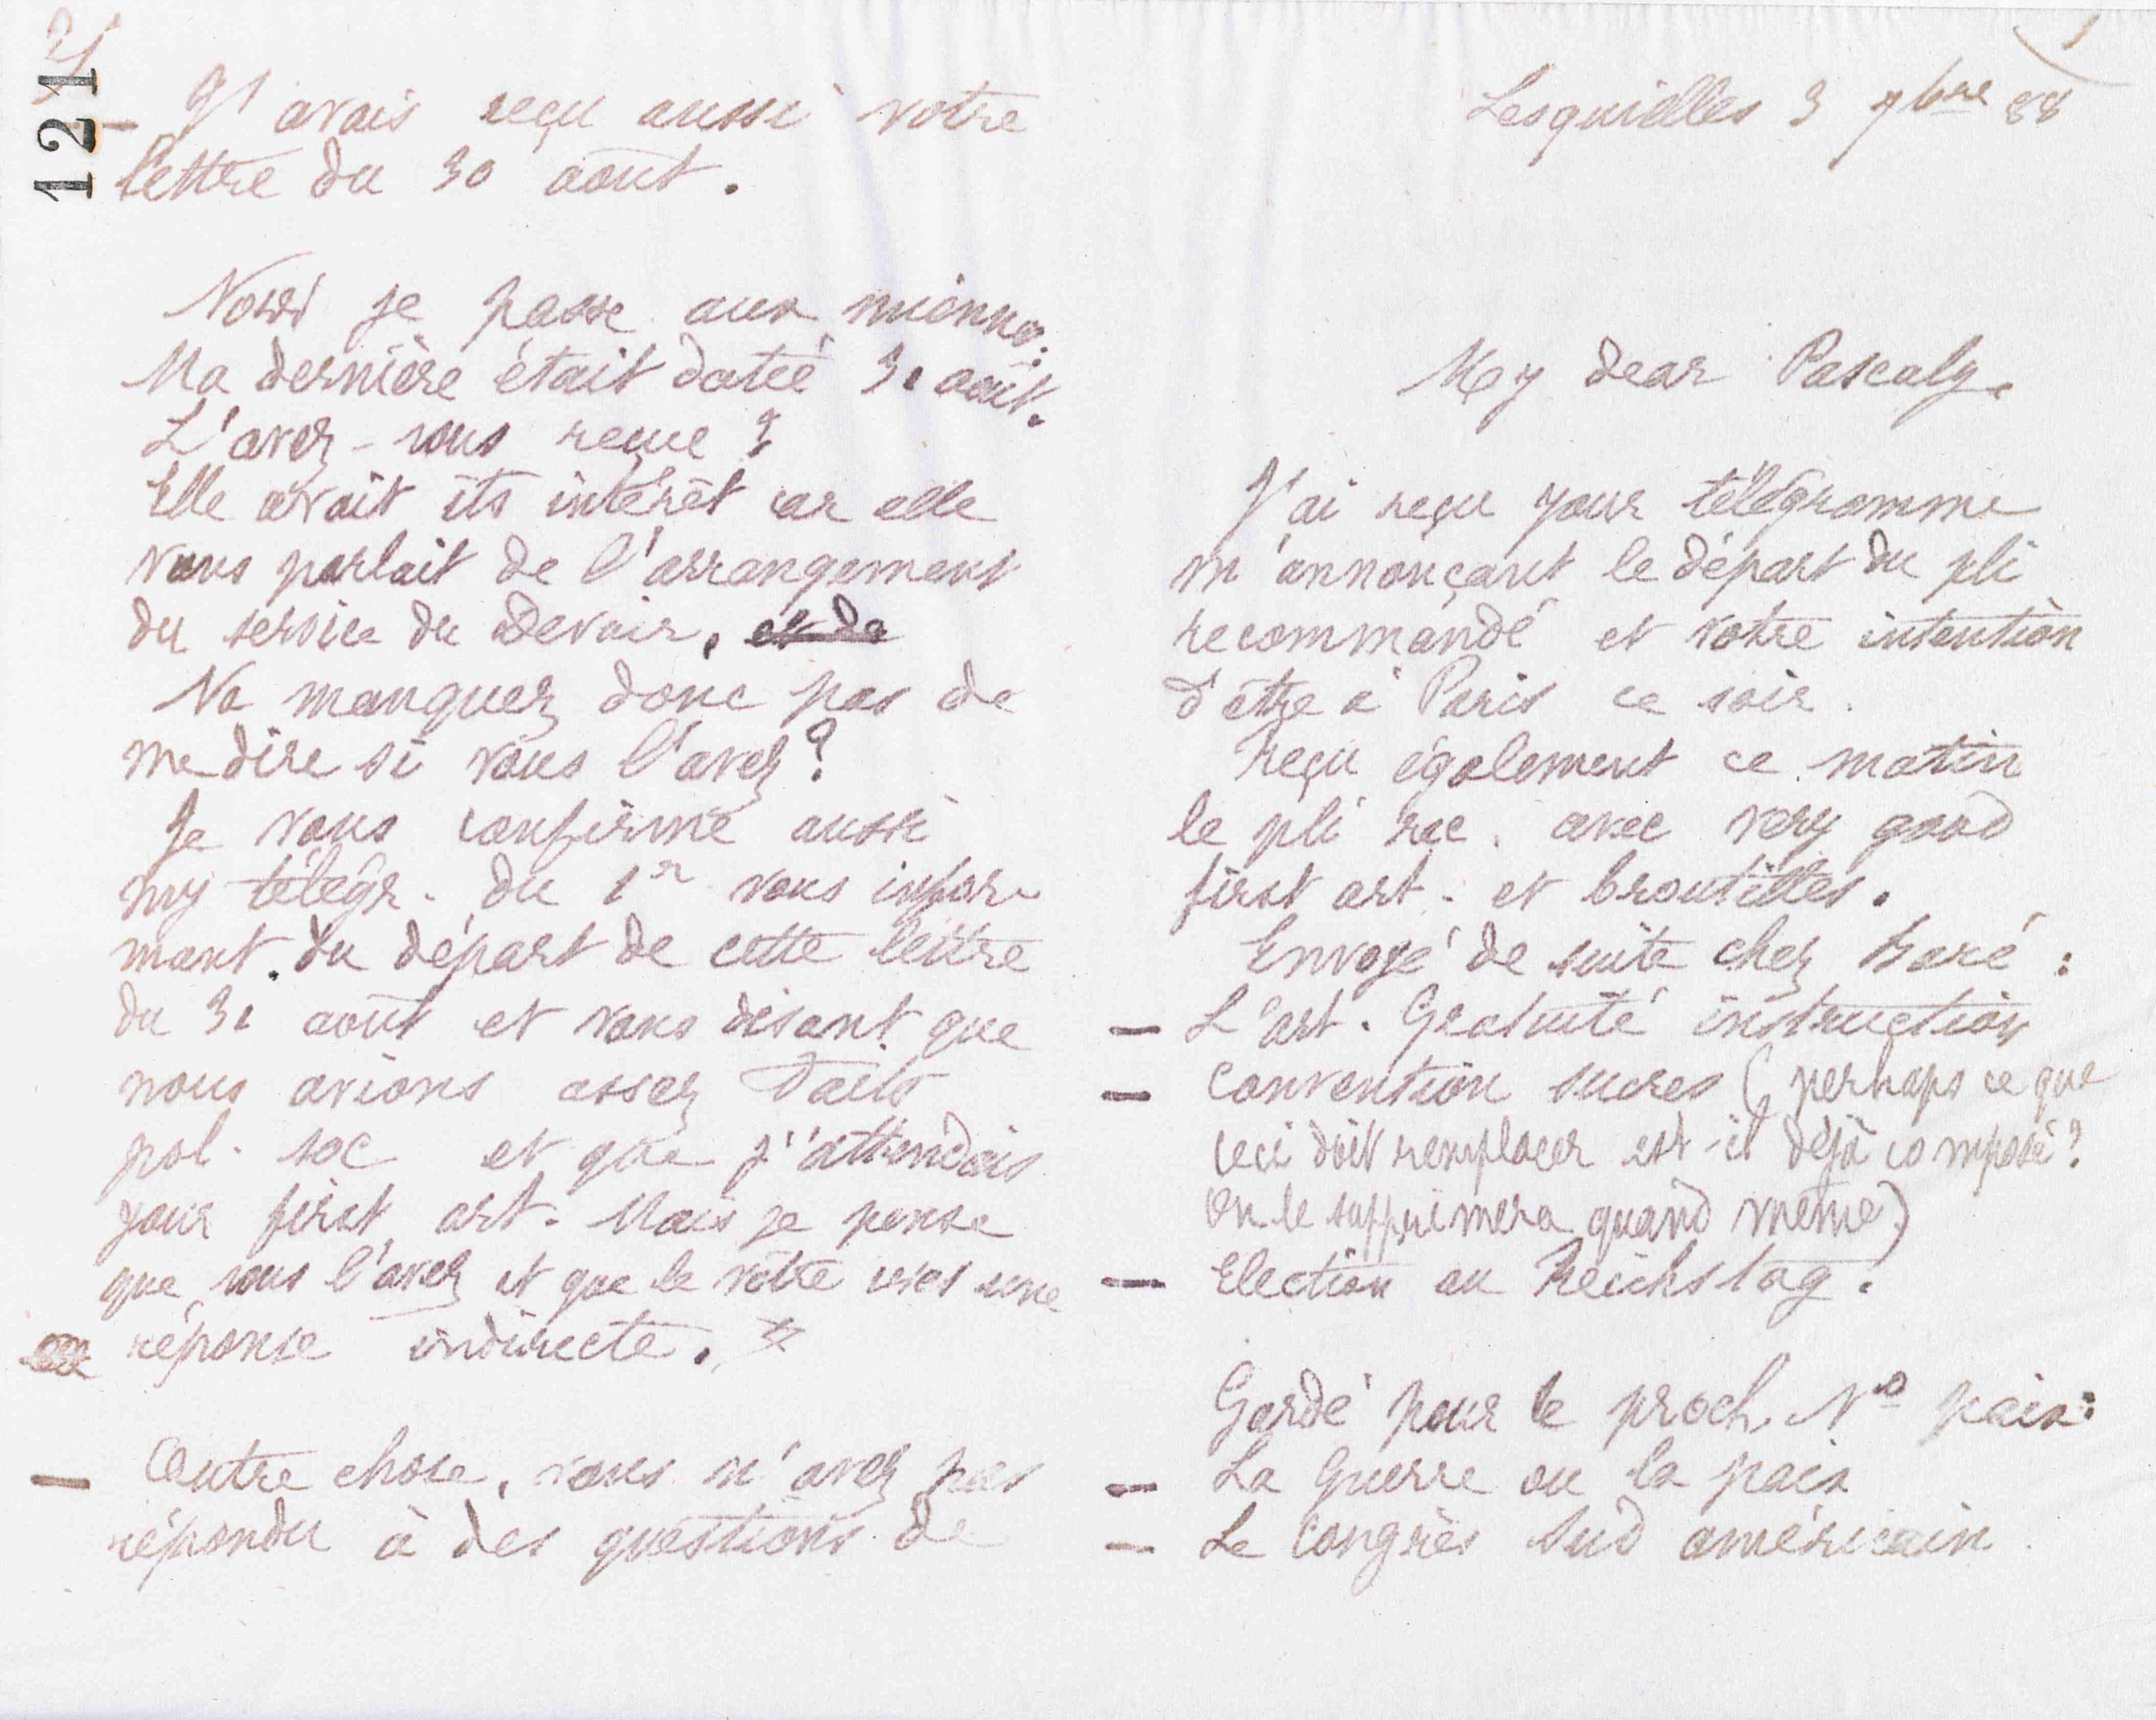 1
Lesquielles 3 7bre 88
My dear Pascaly.
J'ai reçu your télégramme
m'annonçant le départ du pli
recommandé et votre intention
d'être à Paris ce soir.
Reçu également ce matin
le pli rec. avec very good
first art. et broutilles.
Envoyé de suite chez Baré :
— L'art. Gratuité instruction
— Convention sucres (perhaps ce que
ceci doit remplacer est-il déjà composé ?
On le supprimera quand même)
— Election au Reichstag.
Gardé pour le proch. No paix :
— La guerre ou la paix
— Le Congrès Sud américain.
121
2
— J'avais reçu aussi votre
lettre du 30 août.
Now je passe aux miennes :
Ma dernière était datée 31 août.
L'avez-vous reçue ?
Elle avait its intérêt car elle
vous parlait de l'arrangement
du service du Devoir. et de
Ne manquez donc pas de
me dire si vous l'avez ?
Je vous confirme aussi
my télégr. du 1er vous infor-
mant du départ de cette lettre
du 31 août et vous disant que
nous avions assez faits
pol. soc et que j'attendais
your first art. Mais je pense
que vous l'avez et que le vôtre was une
réponse indirecte.
— Autre chose, vous n'avez pas
répondu à des questions de